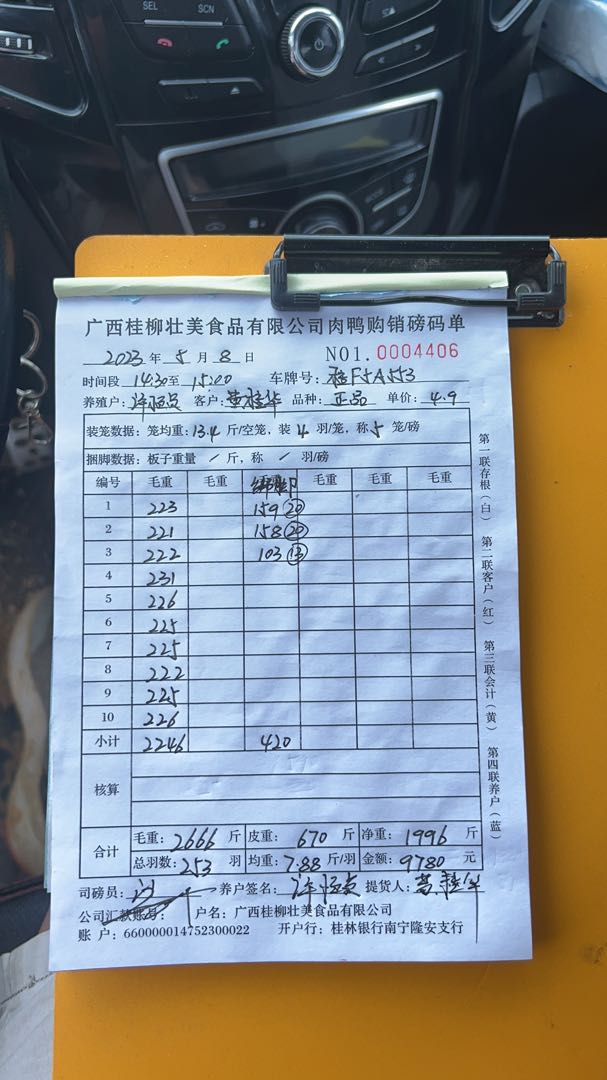 SEL SCN
广西桂柳壮美食品有限公司肉鸭购销磅码单
2023 年 5 月 8 日 NO1. 0004406
时间段 14:30至 15:00 车牌号: F5A553
养殖户: 客户: 黄桂华 品种: 正品 单价: 4.9
装笼数据: 笼均重: 13.4 斤/空笼, 装 4 羽/笼, 称 5 笼/磅
捆脚数据: 板子重量 / 斤, 称 / 羽/磅
编号 毛重 毛重 绑脚 毛重 毛重 毛重
1 223 159 (20)
2 221 158 (20)
3 222 103 (13)
4 231
5 226
6 225
7 225
8 222
9 225
10 226
小计 2246 420
核算
合计 毛重: 2666 斤 皮重: 670 斤 净重: 1996 斤
总羽数: 253 羽 均重: 7.88 斤/羽 金额: 9780 元
司磅员: 养户签名: 提货人: 黄桂华
公司汇款账号: 户名: 广西桂柳壮美食品有限公司
账 户: 660000014752300022 开户行: 桂林银行南宁隆安支行
第一联存根(白) 第二联客户(红) 第三联会计(黄) 第四联养户(蓝)